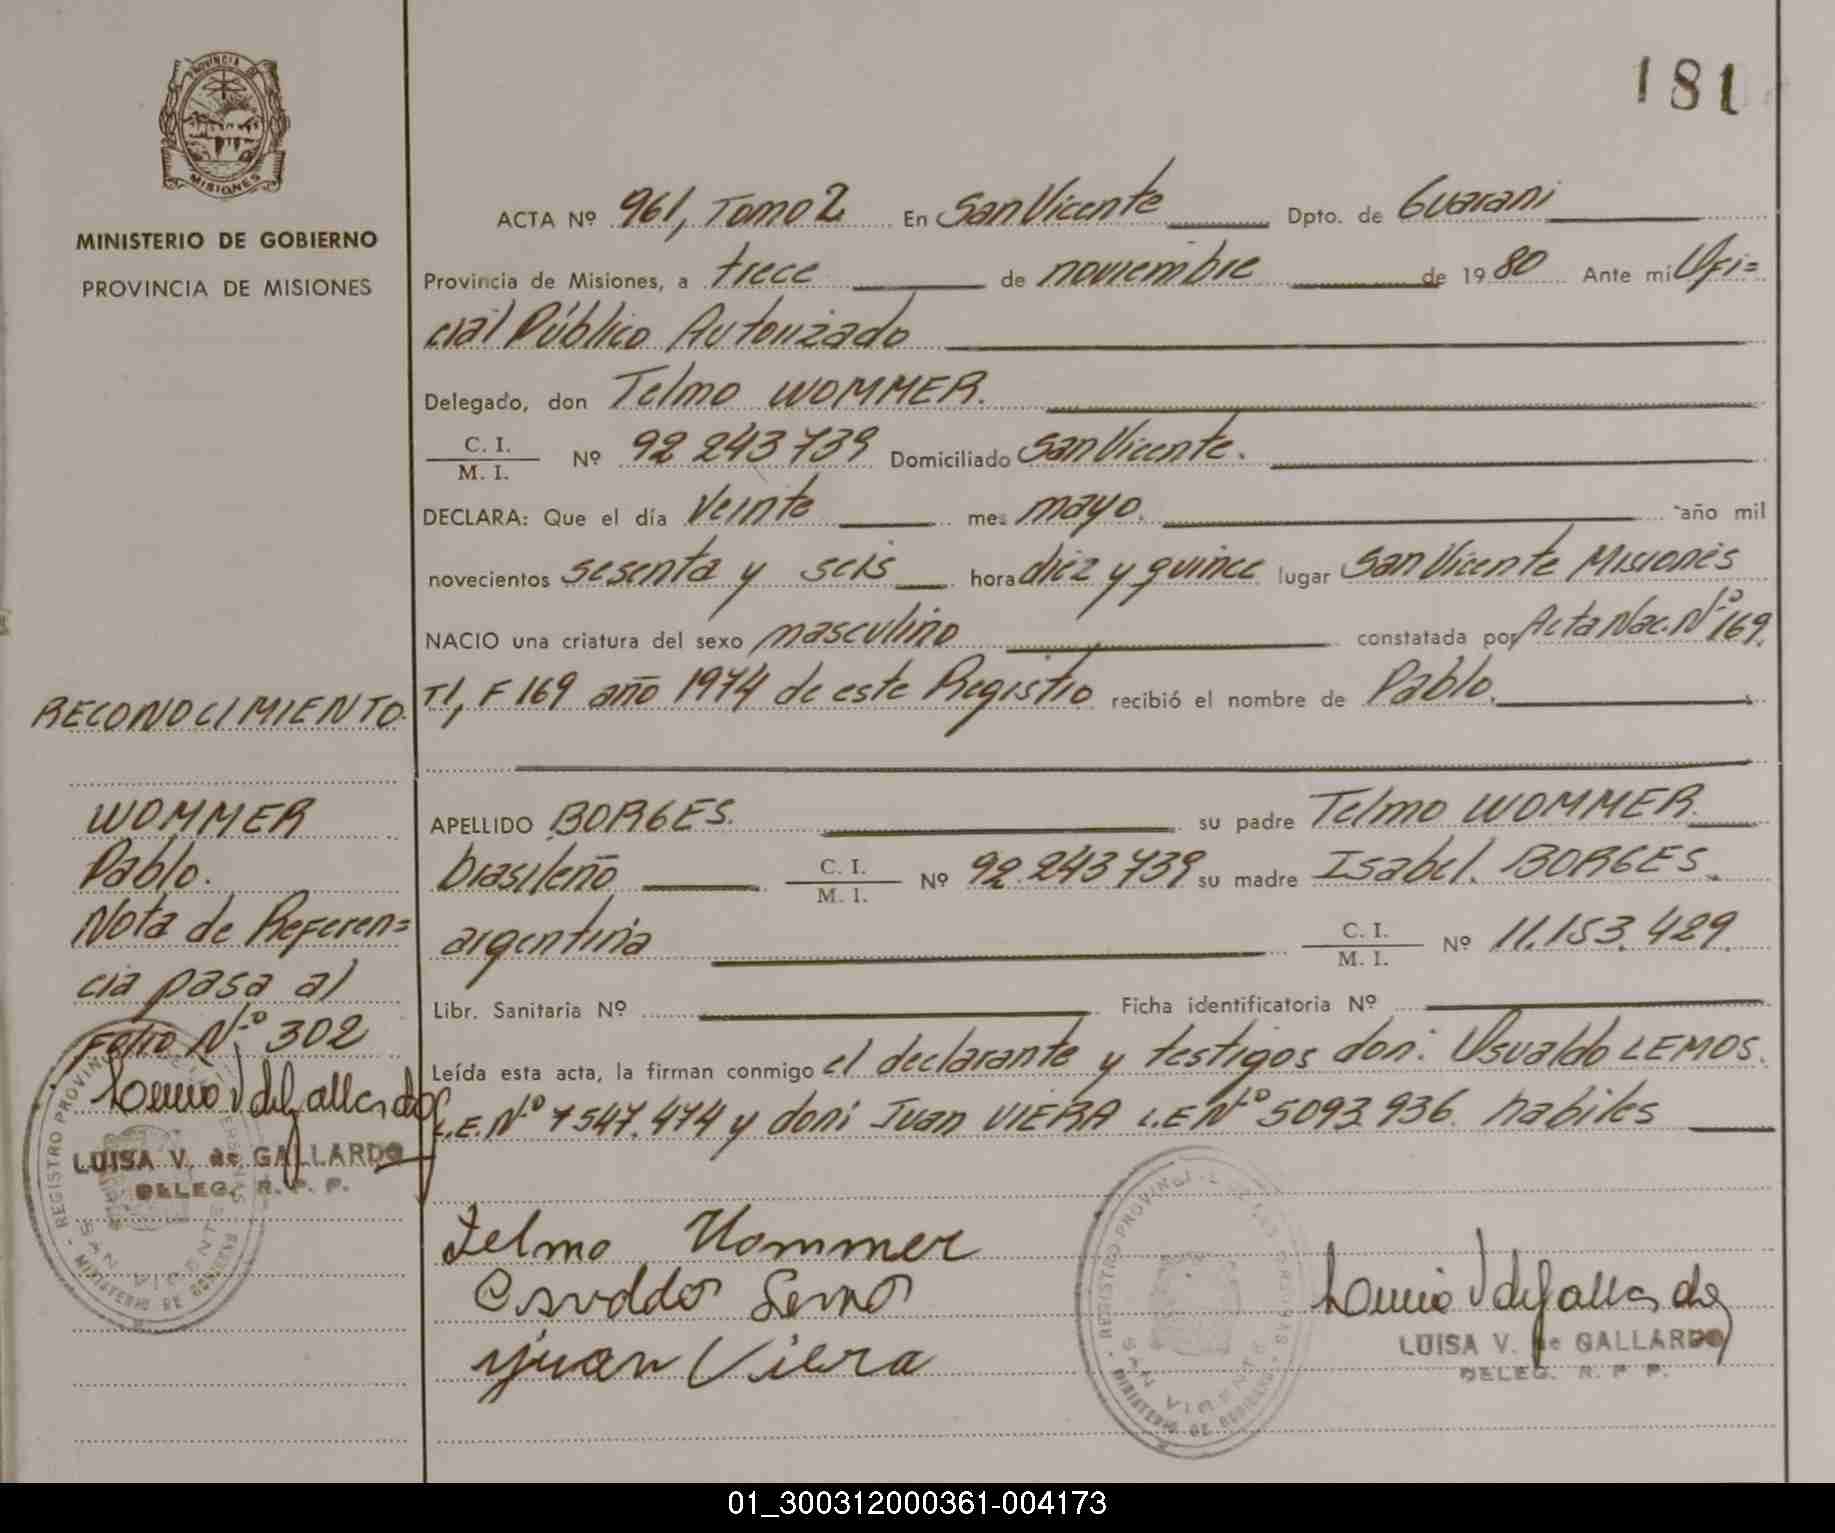 181
PROVINCIA DE
MISIONES
MINISTERIO DE GOBIERNO
PROVINCIA DE MISIONES
ACTA Nº 961, Tomo 2 En San Vicente Dpto. de Guarani
Provincia de Misiones, a trece de noviembre de 1980 Ante mi Ofi=
cial Público Autorizado
Delegado, don Telmo WOMMER.
C. I.
M. I.
Nº 92 243 739 Domiciliado San Vicente.
DECLARA: Que el día Veinte mes mayo. año mil
novecientos sesenta y seis hora diez y quince lugar San Vicente Misiones
NACIO una criatura del sexo masculino constatada por Acta Nac. Nº 169.
T1, F 169 año 1974 de este Registro recibió el nombre de Pablo.
RECONOCIMIENTO.
WOMMER
Pablo.
Nota de Referen=
cia pasa al
Folio Nº 302
LUISA V. de GALLARDO
DELEG. R. P. P.
APELLIDO BORGES. su padre Telmo WOMMER.
brasileño C. I.
M. I.
Nº 92 243 739 su madre Isabel. BORGES.
argentina C. I.
M. I.
Nº 11.153.429.
Libr. Sanitaria Nº Ficha identificatoria Nº
Leída esta acta, la firman conmigo el declarante y testigos don: Osvaldo LEMOS.
L.E. Nº 7547.474 y don: Juan VIERA L.E Nº 5093.936. habiles
Telmo Wommer
Osvaldo Lemos
Juan Viera
LUISA V. de GALLARDO
DELEG. R. P. P.
REGISTRO PROVINCIAL DE LAS PERSONAS
SAN VICENTE
MINISTERIO DE GOBIERNO
01_300312000361-004173